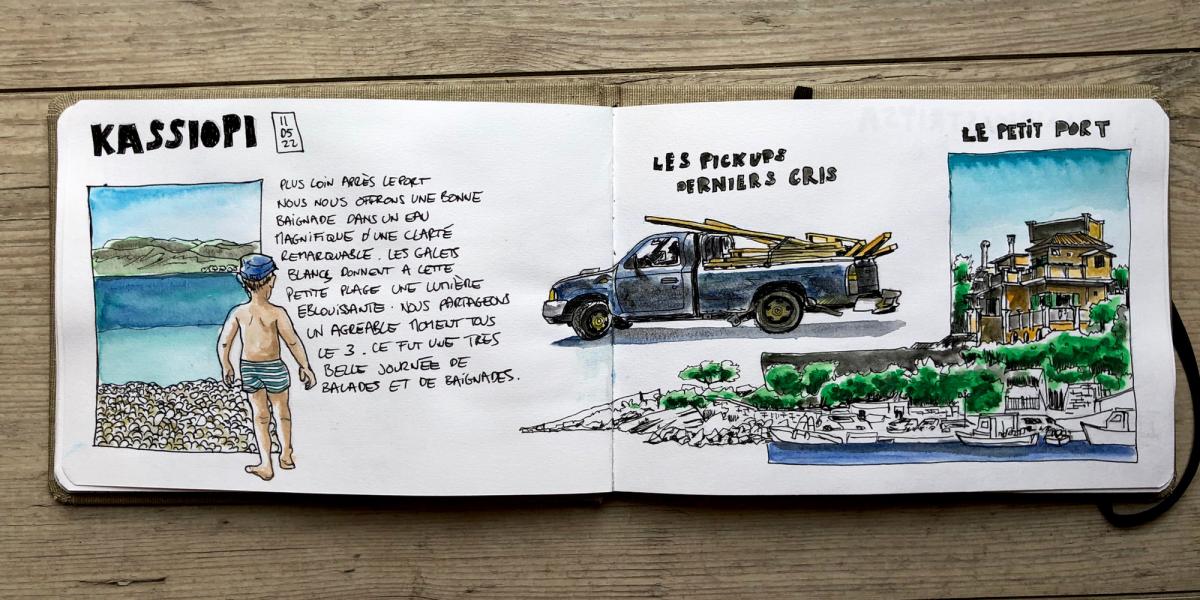 KASSIOPI
11
05
22
PLUS LOIN APRÈS LE PORT
NOUS NOUS OFFRONS UNE BONNE
BAIGNADE DANS UN EAU
MAGNIFIQUE D'UNE CLARTÉ
REMARQUABLE. LES GALETS
BLANCS DONNENT A CETTE
PETITE PLAGE UNE LUMIÈRE
EBLOUISSANTE. NOUS PARTAGEONS
UN AGREABLE MOMENT TOUS
LE 3. CE FUT UNE TRES
BELLE JOURNÉE DE
BALADES ET DE BAIGNADES.
LES PICKUPS
DERNIERS CRIS
LE PETIT PORT